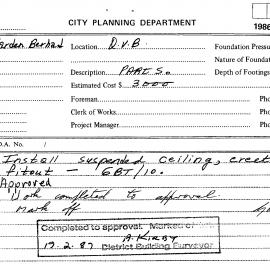 CITY PLANNING DEPARTMENT
1986
Location D.V.B. Foundation Pressu
Nature of Foundat
Description PARTS. Depth of Footings
Estimated Cost $ 3000
Foreman Pho
Clerk of Works Pho
Project Manager Pho
D.A. No. /
Install suspended ceiling, erect
fitout — GBT/10.
Approved
Work completed to approval.
Mark off
Completed to approval. Marked of
A. KIRBY
17.2.87 District Building Surveyor